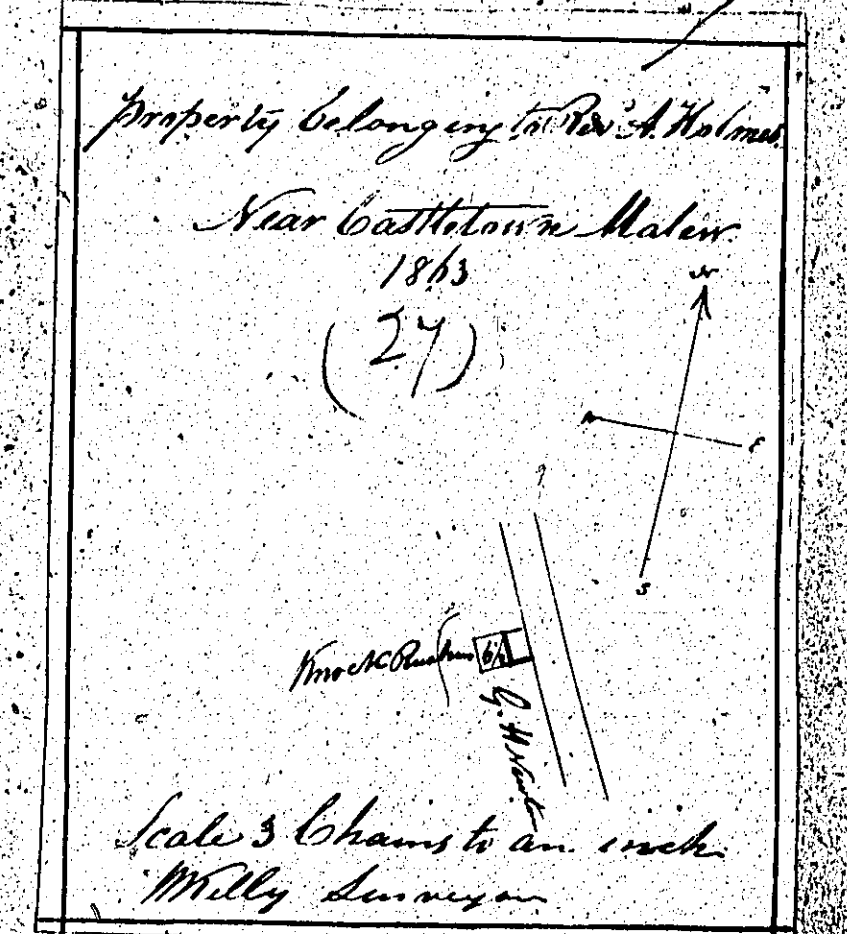 Property belonging to Revd A. Holmes
Near Castletown Malew
1863
(27)
N
E
S
Knock Rushen
G. H
Scale 3 Chains to an inch
WKelly Surveyor